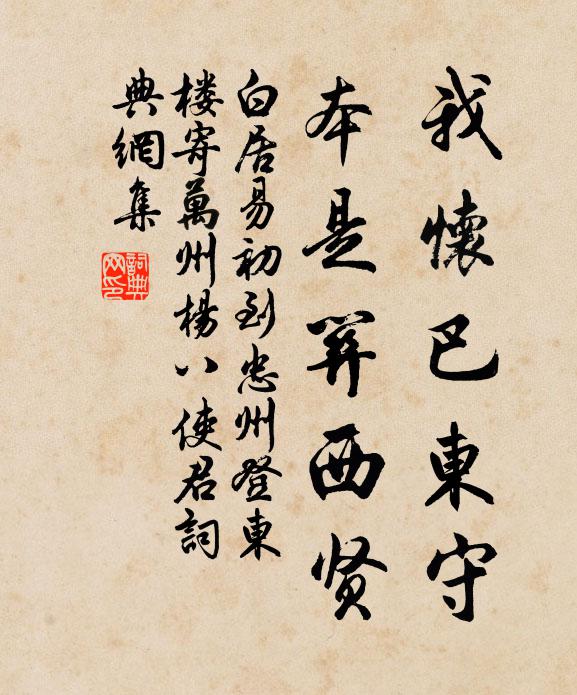 我懷巴東守
本是關西贤
白居易初到忠州登東
楼寄萬州楊八使君詞
典網集
詞典
网印